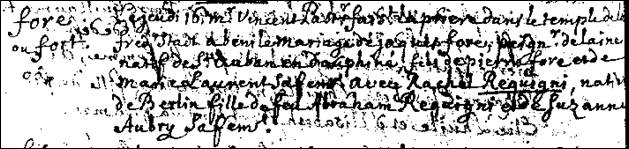 fore ou fort.
Le jeudi 16. mr. Vincent Pastr faist la priere dans le temple de la
freq Stadt a beni le mariage de jaques fore, peign.r de laine
natif de St. Auban en Dauphiné, fils de pierre fore et de
marie Laurent sa fem. avec Rachel Requigni, nati
de Berlin fille de feu Abraham Requigni et de Suzanne
Aubry sa fem.e